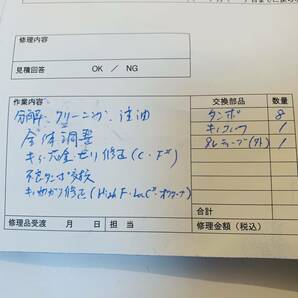 修理内容
見積回答 OK / NG
作業内容
交換部品 数量
分解、クリーニング、注油
タンポ 8
全体調整
キィコルク 1
1
キィ大会せり修正(C・F#)
不良タンポ交換
キィ曲がり修正(High F・Low C#・オクターブ)
合計
修理品受渡 月 日 担当
修理金額(税込)